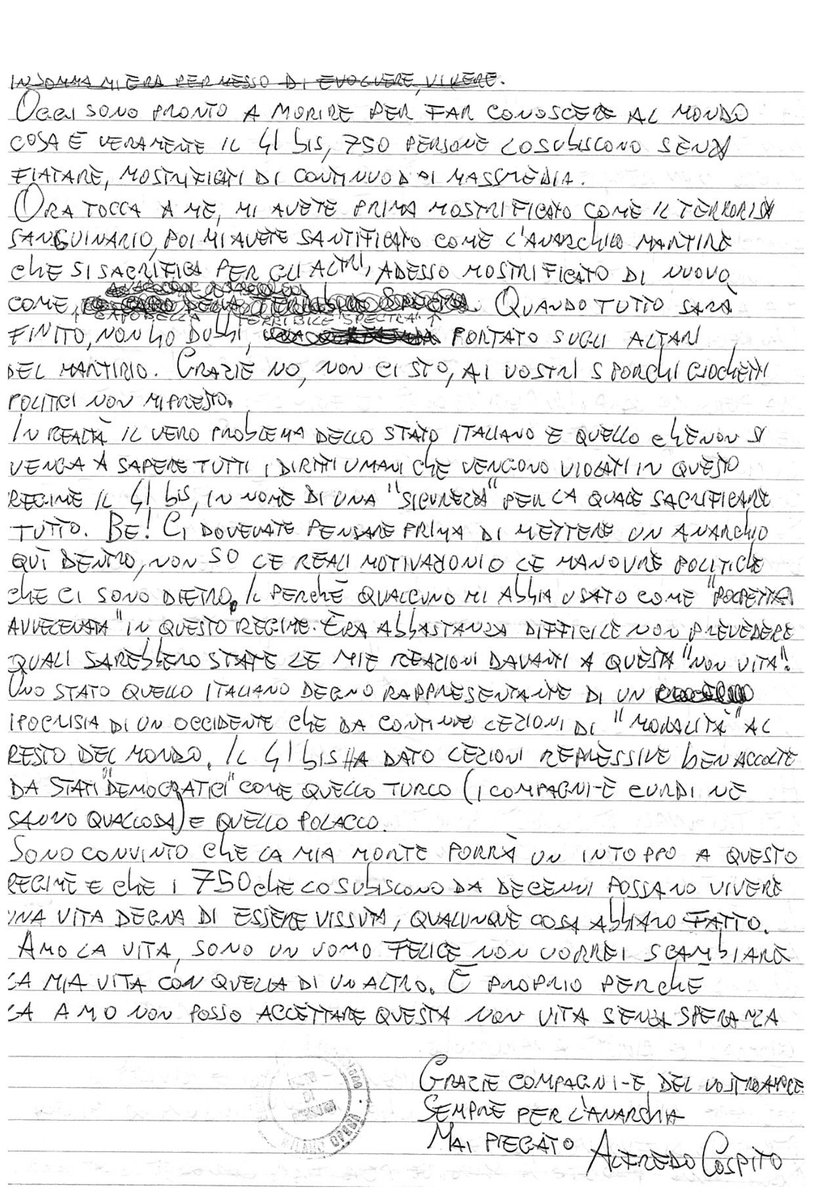 INSOMMA MI ERA PERMESSO DI EVOLVERE, VIVERE.
OGGI SONO PRONTO A MORIRE PER FAR CONOSCERE AL MONDO
COSA È VERAMENTE IL 41 bis, 750 PERSONE LO SUBISCONO SENZA
FIATARE, MOSTRIFICATI DI CONTINUO DAI MASSMEDIA.
ORA TOCCA A ME, MI AVETE PRIMA MOSTRIFICATO COME IL TERRORISTA
SANGUINARIO, POI MI AVETE SANTIFICATO COME L'ANARCHICO MARTIRE
CHE SI SACRIFICA PER GLI ALTRI, ADESSO MOSTRIFICATO DI NUOVO
COME QUANDO TUTTO SARÀ
TERRIBILE SPECTRA
FINITO, NON HO DUBBI, PORTATO SUGLI ALTARI
DEL MARTIRIO. GRAZIE NO, NON CI STO, AI VOSTRI SPORCHI GIOCHETTI
POLITICI NON MI PRESTO.
IN REALTÀ IL VERO PROBLEMA DELLO STATO ITALIANO È QUELLO CHE NON SI
VENGA A SAPERE TUTTI I DIRITTI UMANI CHE VENGONO VIOLATI IN QUESTO
REGIME IL 41 bis, IN NOME DI UNA "SICUREZZA" PER LA QUALE SACRIFICARE
TUTTO. BE! CI DOVEVATE PENSARE PRIMA DI METTERE UN ANARCHICO
QUÌ DENTRO, NON SO LE REALI MOTIVAZIONI O LE MANOVRE POLITICHE
CHE CI SONO DIETRO. IL PERCHÈ QUALCUNO MI ABBIA USATO COME "POLPETTA
AVVELENATA" IN QUESTO REGIME. ERA ABBASTANZA DIFFICILE NON PREVEDERE
QUALI SAREBBERO STATE LE MIE REAZIONI DAVANTI A QUESTA "NON VITA".
UNO STATO QUELLO ITALIANO DEGNO RAPPRESENTANTE DI UN
IPOCRISIA DI UN OCCIDENTE CHE DA CONTINUE LEZIONI DI "MORALITÀ" AL
RESTO DEL MONDO. IL 41 bis HA DATO LEZIONI REPRESSIVE BEN ACCOLTE
DA STATI "DEMOCRATICI" COME QUELLO TURCO (I COMPAGNI-E CURDI NE
SANNO QUALCOSA) E QUELLO POLACCO.
SONO CONVINTO CHE LA MIA MORTE PORRÀ UN INTOPPO A QUESTO
REGIME E CHE I 750 CHE LO SUBISCONO DA DECENNI POSSANO VIVERE
UNA VITA DEGNA DI ESSERE VISSUTA, QUALUNQUE COSA ABBIANO FATTO.
AMO LA VITA, SONO UN UOMO FELICE NON VORREI SCAMBIARE
LA MIA VITA CON QUELLA DI UN ALTRO. È PROPRIO PERCHÈ
LA AMO NON POSSO ACCETTARE QUESTA NON VITA SENZA SPERANZA
GRAZIE COMPAGNI-E DEL VOSTRO AMORE
SEMPRE PER L'ANARCHIA
MAI PIEGATO ALFREDO COSPITO
MILANO OPERA